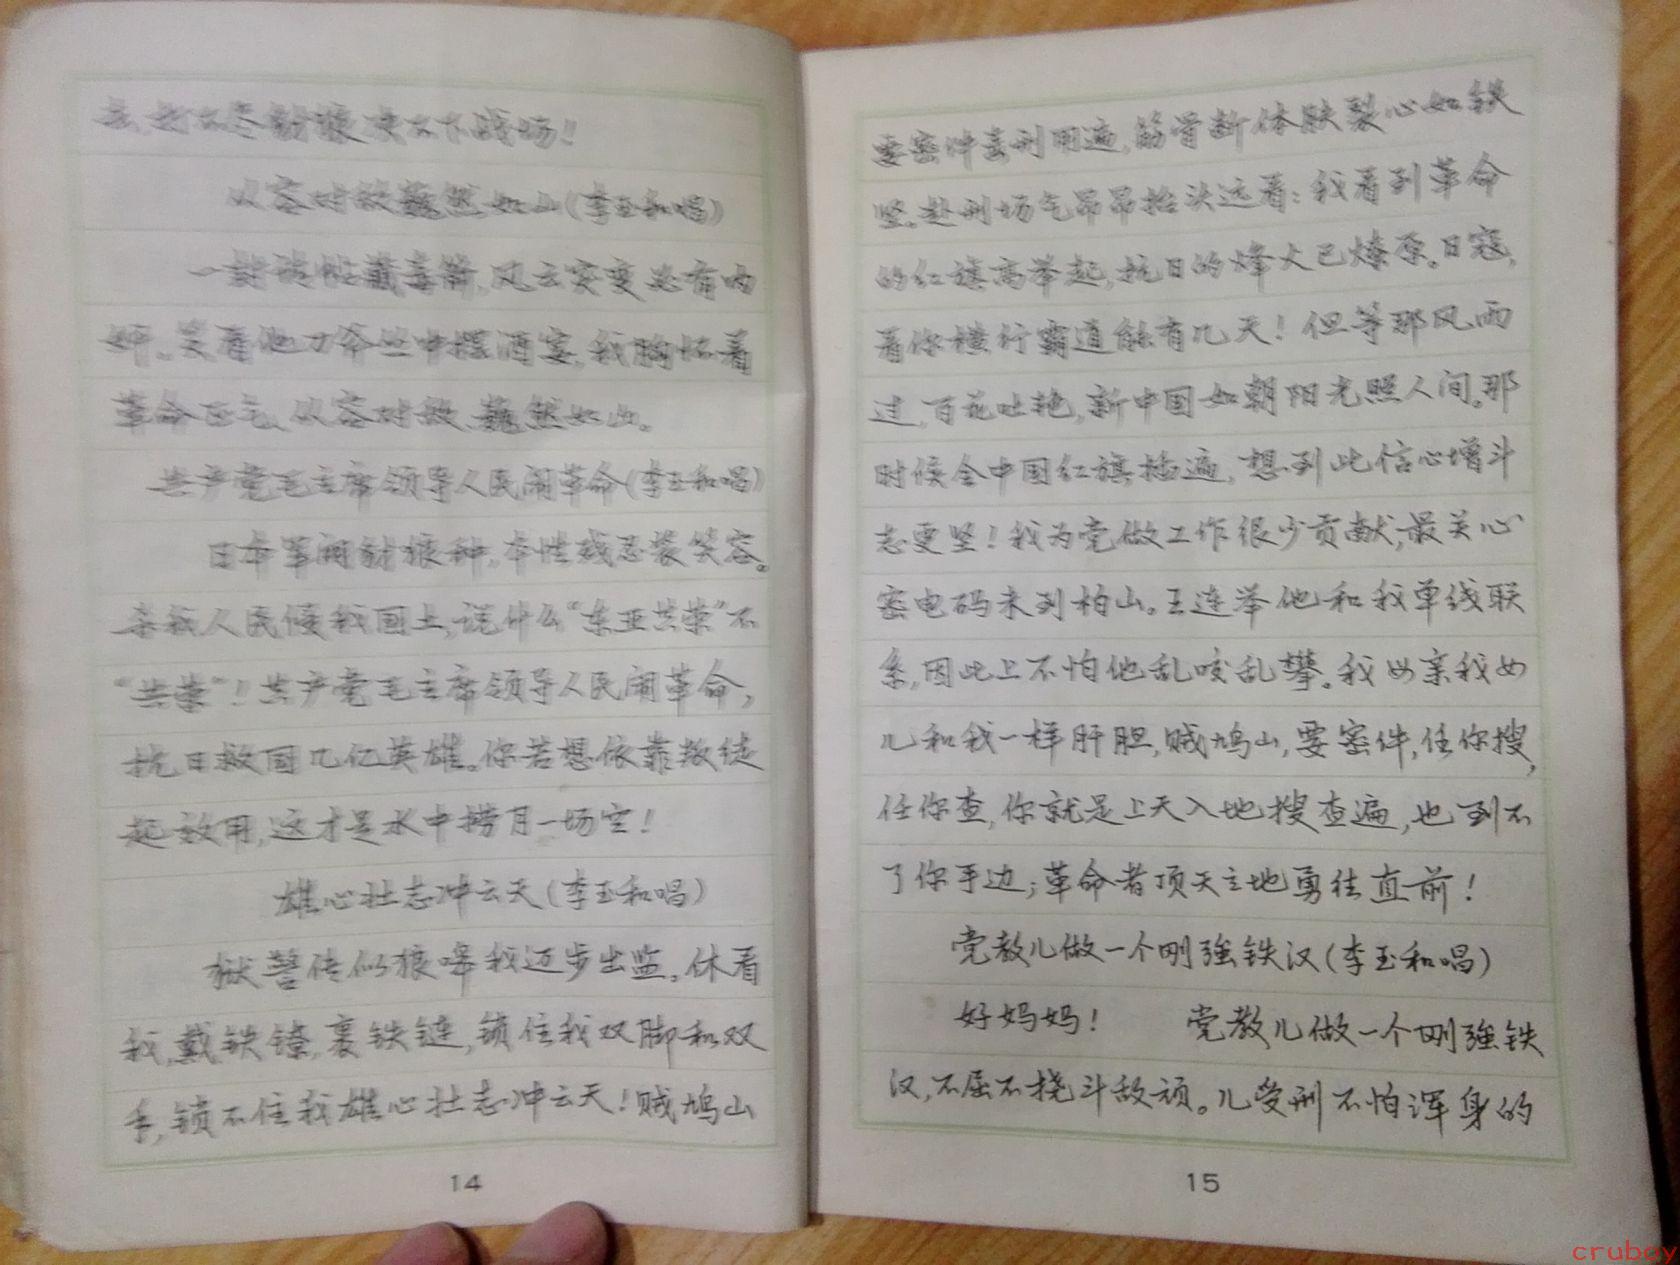 去,打不尽豺狼决不下战场!
从容对敌巍然如山(李玉和唱)
一封请帖藏毒箭,风云突变必有内
奸。笑看他刀斧丛中摆酒宴,我胸怀着
革命正气、从容对敌、巍然如山。
共产党毛主席领导人民闹革命(李玉和唱)
日本军阀豺狼种,本性残忍装笑容。
杀我人民侵我国土,说什么“东亚共荣”不
“共荣”!共产党毛主席领导人民闹革命,
抗日救国几亿英雄。你若想依靠叛徒
起效用,这才是水中捞月一场空!
雄心壮志冲云天(李玉和唱)
狱警传似狼嗥我迈步出监。休看
我,戴铁镣,裹铁链,锁住我双脚和双
手,锁不住我雄心壮志冲云天!贼鸠山
14
要密件毒刑用遍,筋骨断体肤裂心如铁
坚。赴刑场气昂昂抬头远看:我看到革命
的红旗高举起,抗日的烽火已燎原。日寇,
看你横行霸道能有几天!但等那风雨
过,百花吐艳,新中国如朝阳光照人间。那
时候全中国红旗插遍,想到此信心增斗
志更坚!我为党做工作很少贡献,最关心
密电码未到柏山。王连举他和我单线联
系,因此上不怕他乱咬乱攀。我母亲我女
儿和我一样肝胆,贼鸠山,要密件,任你搜,
任你查,你就是上天入地搜查遍,也到不
了你手边;革命者顶天立地勇往直前!
党教儿做一个刚强铁汉(李玉和唱)
好妈妈! 党教儿做一个刚强铁
汉,不屈不挠斗敌顽。儿受刑不怕浑身的
15
cruboy